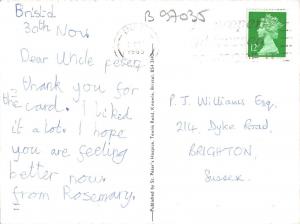 Bristol
30th Nov.
Dear Uncle peter,
thank you for
the card. I liked
it a lot. I hope
you are feeling
better now
from Rosemary.
B 97035
12
P. J. Williams Esq.,
214, Dyke Road,
BRIGHTON,
Sussex.
Published by St. Peter's Hospice, Tennis Road, Knowle, Bristol.